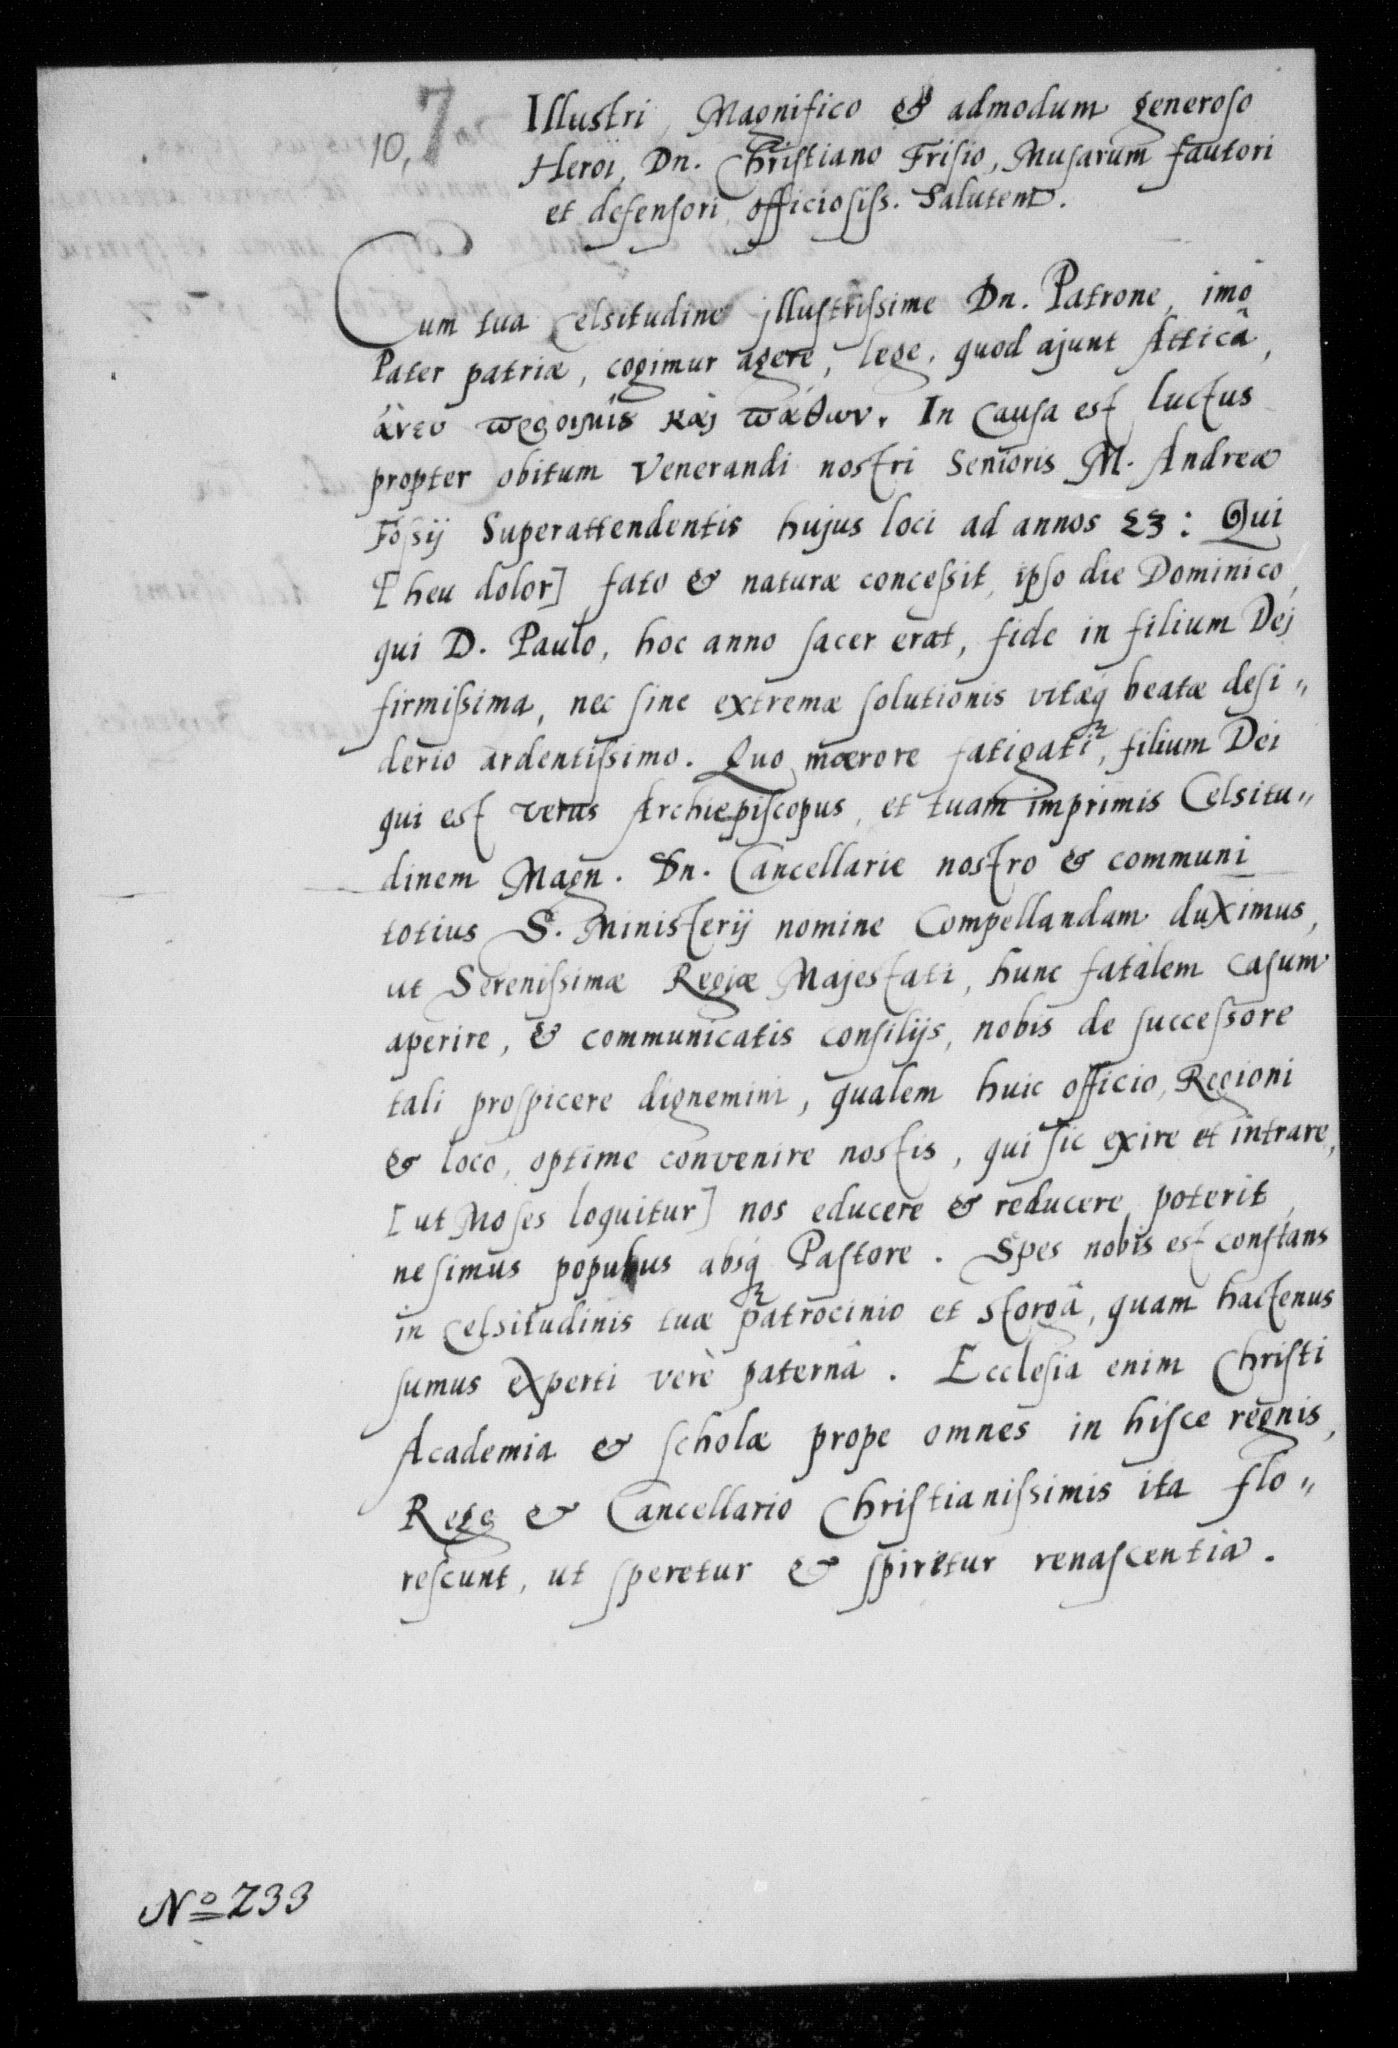 10, 7
Illustri, Magnifico & admodum generoso
Heroi, Dn. Christiano Frisio, Musarum fautori
et defensori officiosiss. Salutem.
Cum tua Celsitudine jllustrissime Dn. Patrone, imò
Pater patriæ, cogimur agere, lege, quod ajunt Atticâ,
ἄνευ προοιμίȣ καὶ πάθων. In causa est luctus
propter obitum Venerandi nostri Senioris M. Andreæ
Fossij Superattendentis hujus loci ad annos 23: Qui
[heu dolor] fato & naturæ concessit, ipso die Dominico,
qui D. Paulo, hoc anno sacer erat, fide in filium Dej
firmissima, nec sine extremæ solutionis vitæq beatæ desi„
derio ardentissimo. Quo mœrore fatigati, filium Dei
qui est verus Archiepiscopus, et tuam imprimis Celsitu„
dinem Magn. Dn. Cancellarie nostro & communi
totius S. Ministerij nomine Compellandam duximus,
ut Serenissimæ Regiæ Majestati, hunc fatalem casum
aperire, & communicatis consilijs, nobis de successore
tali prospicere dignemini, qualem huic officio, Regioni
& loco, optime convenire nostis, qui sic exire et intrare,
[ut Moses loquitur] nos educere & reducere poterit,
ne simus populus absq Pastore. Spes nobis est constans
in Celsitudinis tuæ patrocinio et storgâ, quam hactenus
sumus experti verè paternâ. Ecclesia enim Christi
Academia & scholæ prope omnes in hisce regnis,
Rege & Cancellario Christianissimis ita flo„
rescunt, ut speretur & spiretur renascentia.
No 233